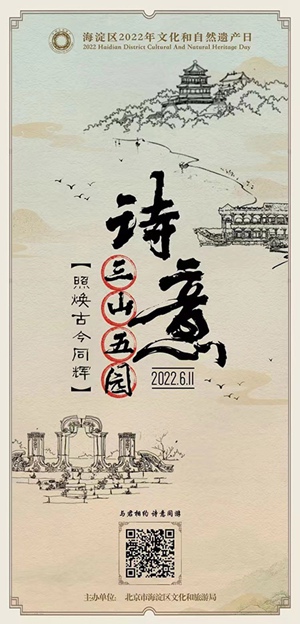 海淀区2022年文化和自然遗产日
2022 Haidian District Cultural And Natural Heritage Day
诗意
三山五园
【照焕古今同辉】
2022.6.11
与君相约 诗意同游
主办单位： 北京市海淀区文化和旅游局